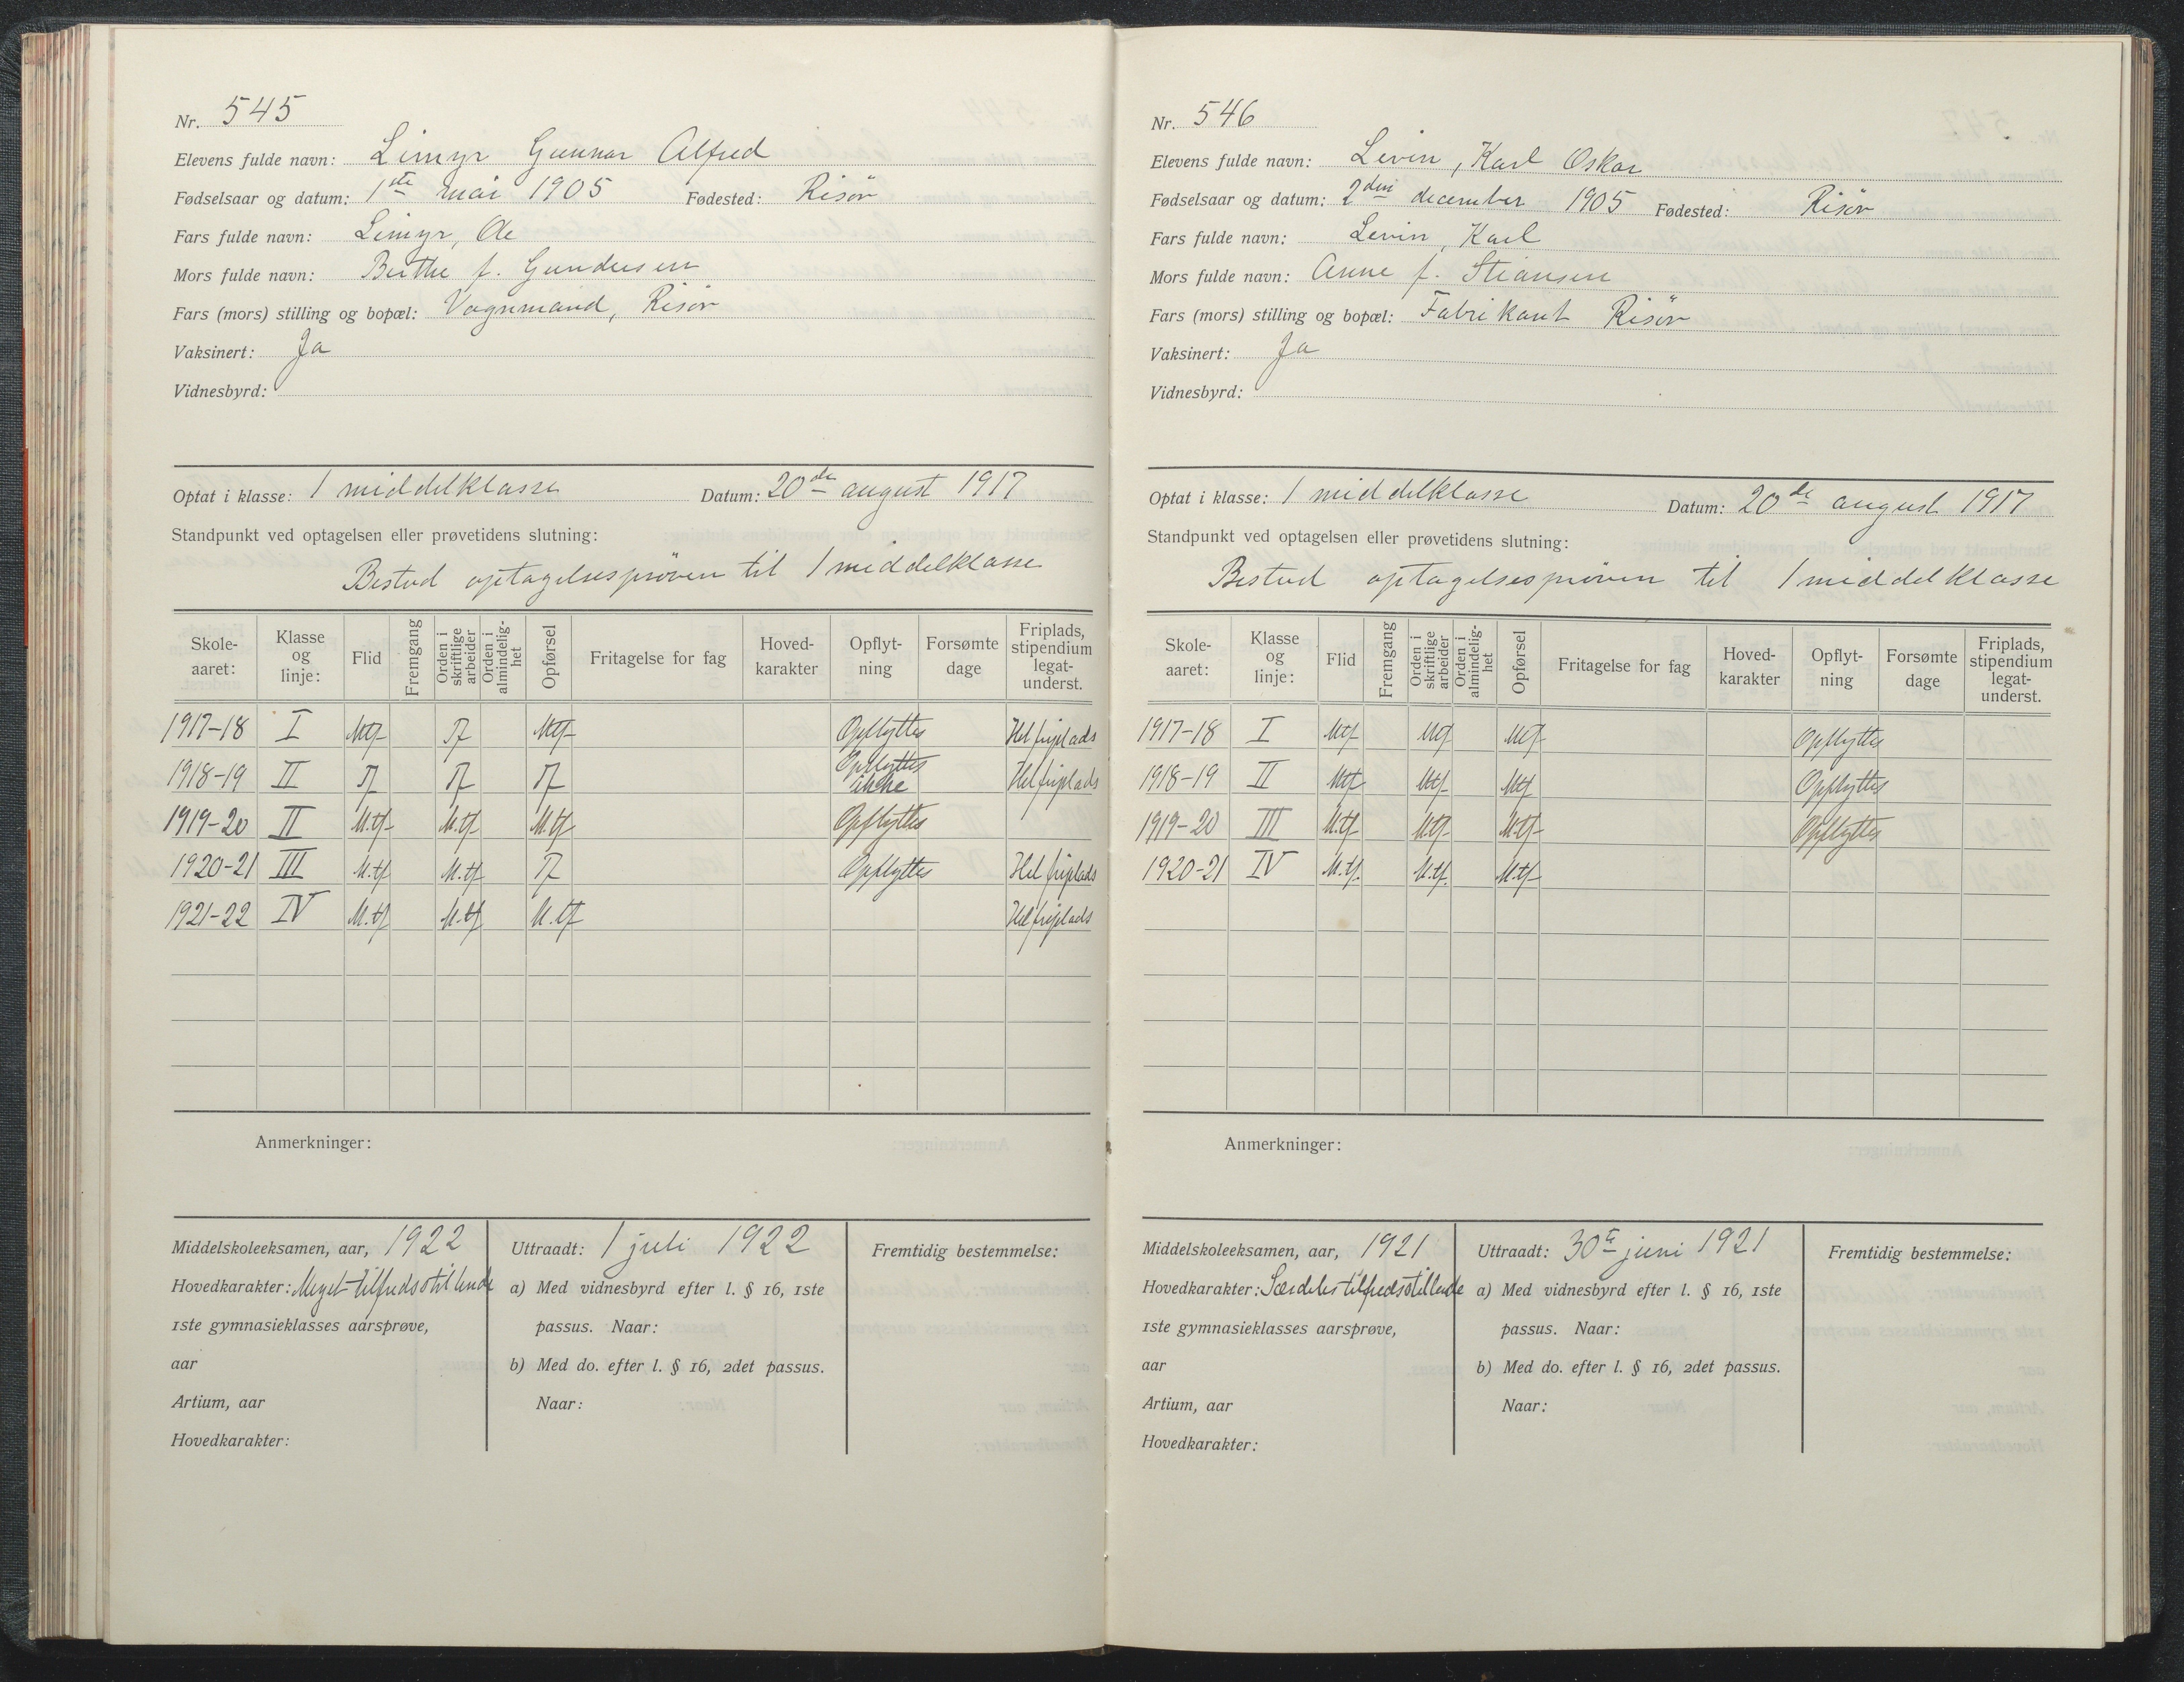 Nr. 545
Elevens fulde navn: Limyr Gunnar Alfred
Fødselsaar og datum: 1ste mai 1905 Fødested: Risör
Fars fulde navn: Limyr, Ole
Mors fulde navn: Berthe f. Gundersen
Fars (mors) stilling og bopæl: Vognmand, Risör
Vaksinert: Ja
Vidnesbyrd:
Optat i klasse: 1 middelklasse Datum: 20de august 1917
Standpunkt ved optagelsen eller prøvetidens slutning:
Bestod optagelsespröven til 1 middelklasse
Skole-aaret: Klasse og linje: Flid Fremgang Orden i skriftlige arbeider Orden i almindelig-het Opførsel Fritagelse for fag Hoved-karakter Opflyt-ning Forsømte dage Friplads, stipendium legat-underst.
1917-18 I Mtf Tf Mtf Opflyttes Hel friplads
1918-19 II Tf Tf Tf Opflyttes ikke Hel friplads
1919-20 II M.tf M.tf M.tf Opflyttes
1920-21 III M.tf M.tf Tf Opflyttes Hel friplads
1921-22 IV M.tf M.tf M.tf Hel friplads
Anmerkninger:
Middelskoleeksamen, aar, 1922
Hovedkarakter: Meget tilfredsstillende
1ste gymnasieklasses aarsprøve,
aar
Artium, aar
Hovedkarakter:
Uttraadt: 1 juli 1922
a) Med vidnesbyrd efter l. § 16, 1ste
passus. Naar:
b) Med do. efter l. § 16, 2det passus.
Naar:
Fremtidig bestemmelse:
Nr. 546
Elevens fulde navn: Levin, Karl Oskar
Fødselsaar og datum: 2den december 1905 Fødested: Risör
Fars fulde navn: Levin, Karl
Mors fulde navn: Anne f. Stiansen
Fars (mors) stilling og bopæl: Fabrikant Risör
Vaksinert: Ja
Vidnesbyrd:
Optat i klasse: 1 middelklasse Datum: 20de august 1917
Standpunkt ved optagelsen eller prøvetidens slutning:
Bestod optagelsespröven til 1 middelklasse
Skole-aaret: Klasse og linje: Flid Fremgang Orden i skriftlige arbeider Orden i almindelig-het Opførsel Fritagelse for fag Hoved-karakter Opflyt-ning Forsømte dage Friplads, stipendium legat-underst.
1917-18 I Mtf Mtf Mtf Opflyttes
1918-19 II Mtf Mtf Mtf Opflyttes
1919-20 III M.tf M.tf M.tf Opflyttes
1920-21 IV M.tf. M.tf. M.tf
Anmerkninger:
Middelskoleeksamen, aar, 1921
Hovedkarakter: Særdeles tilfredsstillende
1ste gymnasieklasses aarsprøve,
aar
Artium, aar
Hovedkarakter:
Uttraadt: 30te juni 1921
a) Med vidnesbyrd efter l. § 16, 1ste
passus. Naar:
b) Med do. efter l. § 16, 2det passus.
Naar:
Fremtidig bestemmelse: